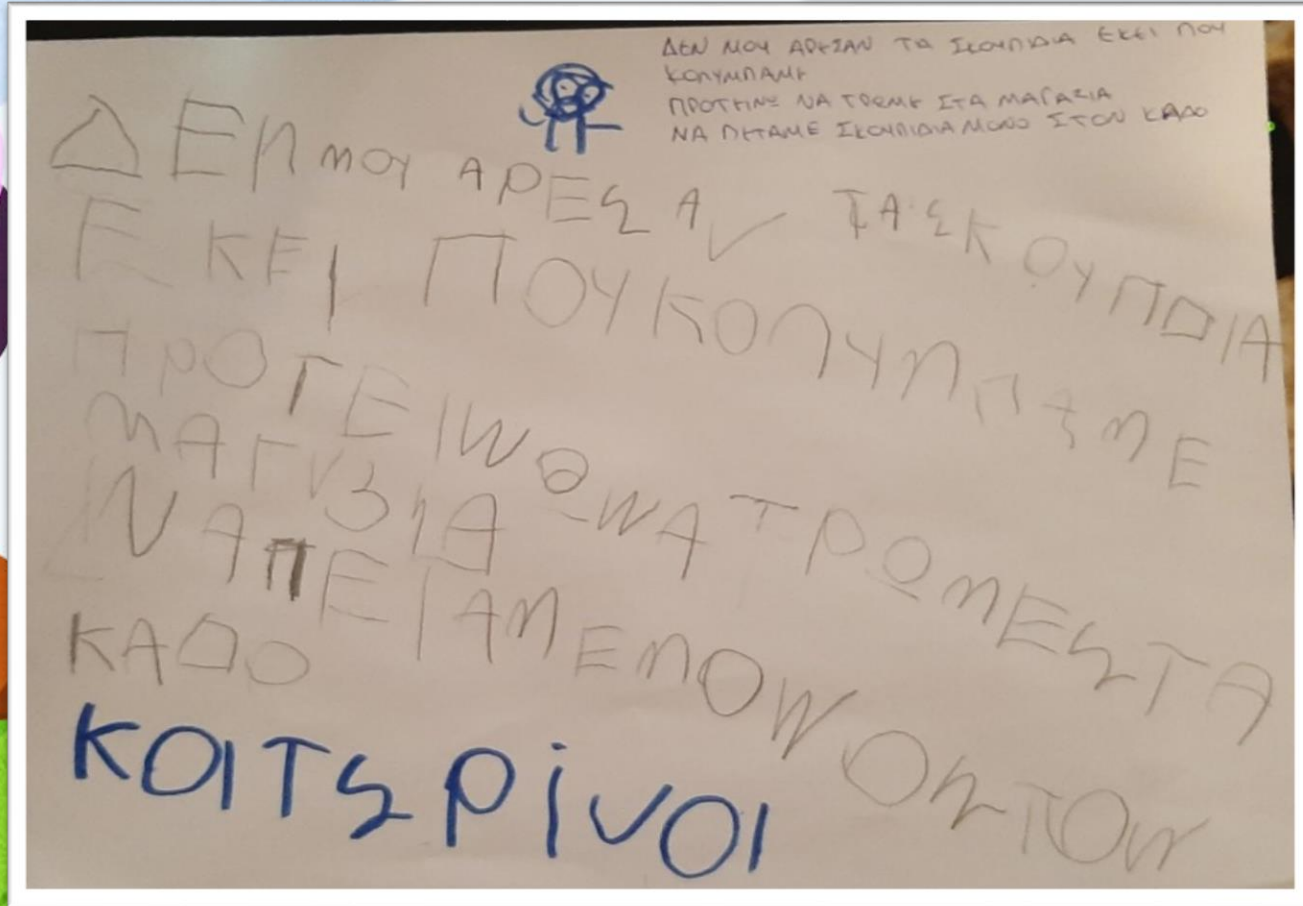 ΔΕΝ ΜΟΥ ΑΡΕΣΑΝ ΤΑ ΣΚΟΥΠΙΔΙΑ ΕΚΕΙ ΠΟΥ
ΚΟΛΥΜΠΑΜΕ
ΠΡΟΤΕΙΝΩ ΝΑ ΤΡΩΜΕ ΣΤΑ ΜΑΓΑΖΙΑ
ΝΑ ΠΕΤΑΜΕ ΣΚΟΥΠΙΔΙΑ ΜΟΝΟ ΣΤΟΝ ΚΑΔΟ
ΔΕΝ ΜΟΥ ΑΡΕΣΑΝ ΤΑ ΣΚΟΥΠΔΙΑ
ΕΚΕΙ ΠΟΥ ΚΟΛΥΜΠΑΜΕ
ΠΡΟΤΕΙΝΩ ΝΑ ΤΡΩΜΕ ΣΤΑ
ΜΑΓΑΖΙΑ
ΝΑ ΠΕΤΑΜΕ ΜΟΝΟ ΣΤΟΝ
ΚΑΔΟ
ΚΟΙΤΣΡίνΟΙ